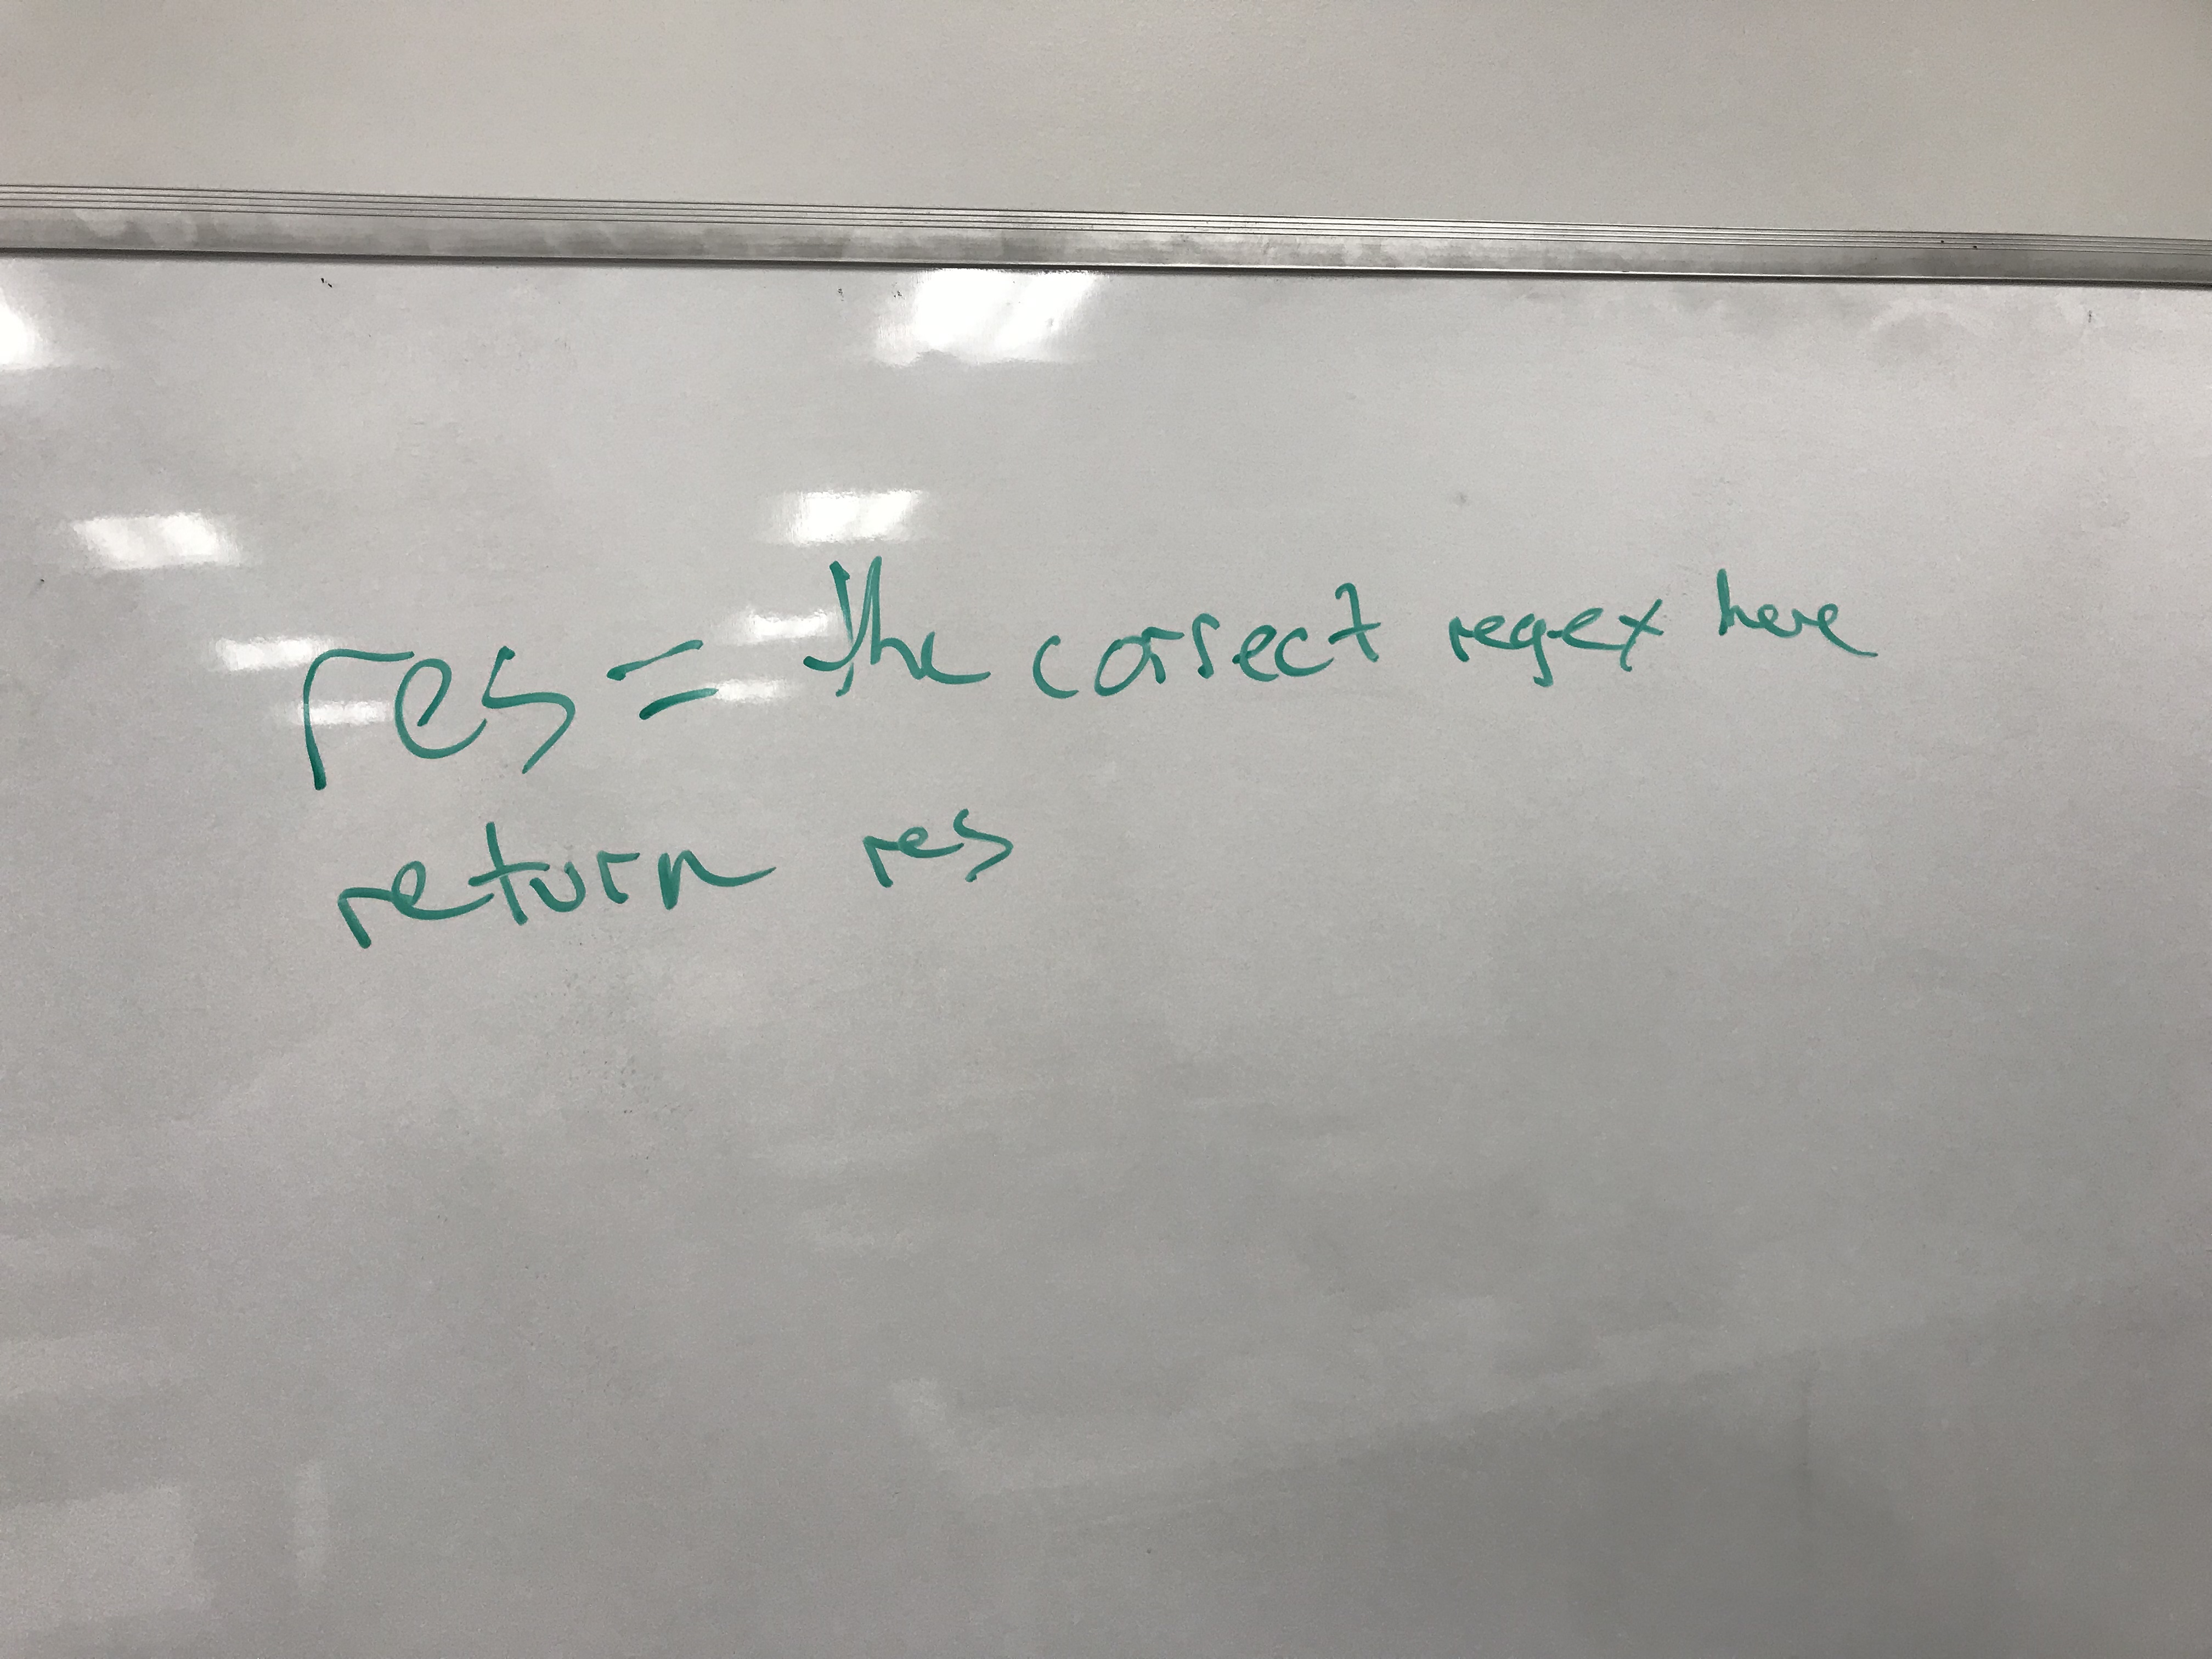 res = the correct regex here
return res